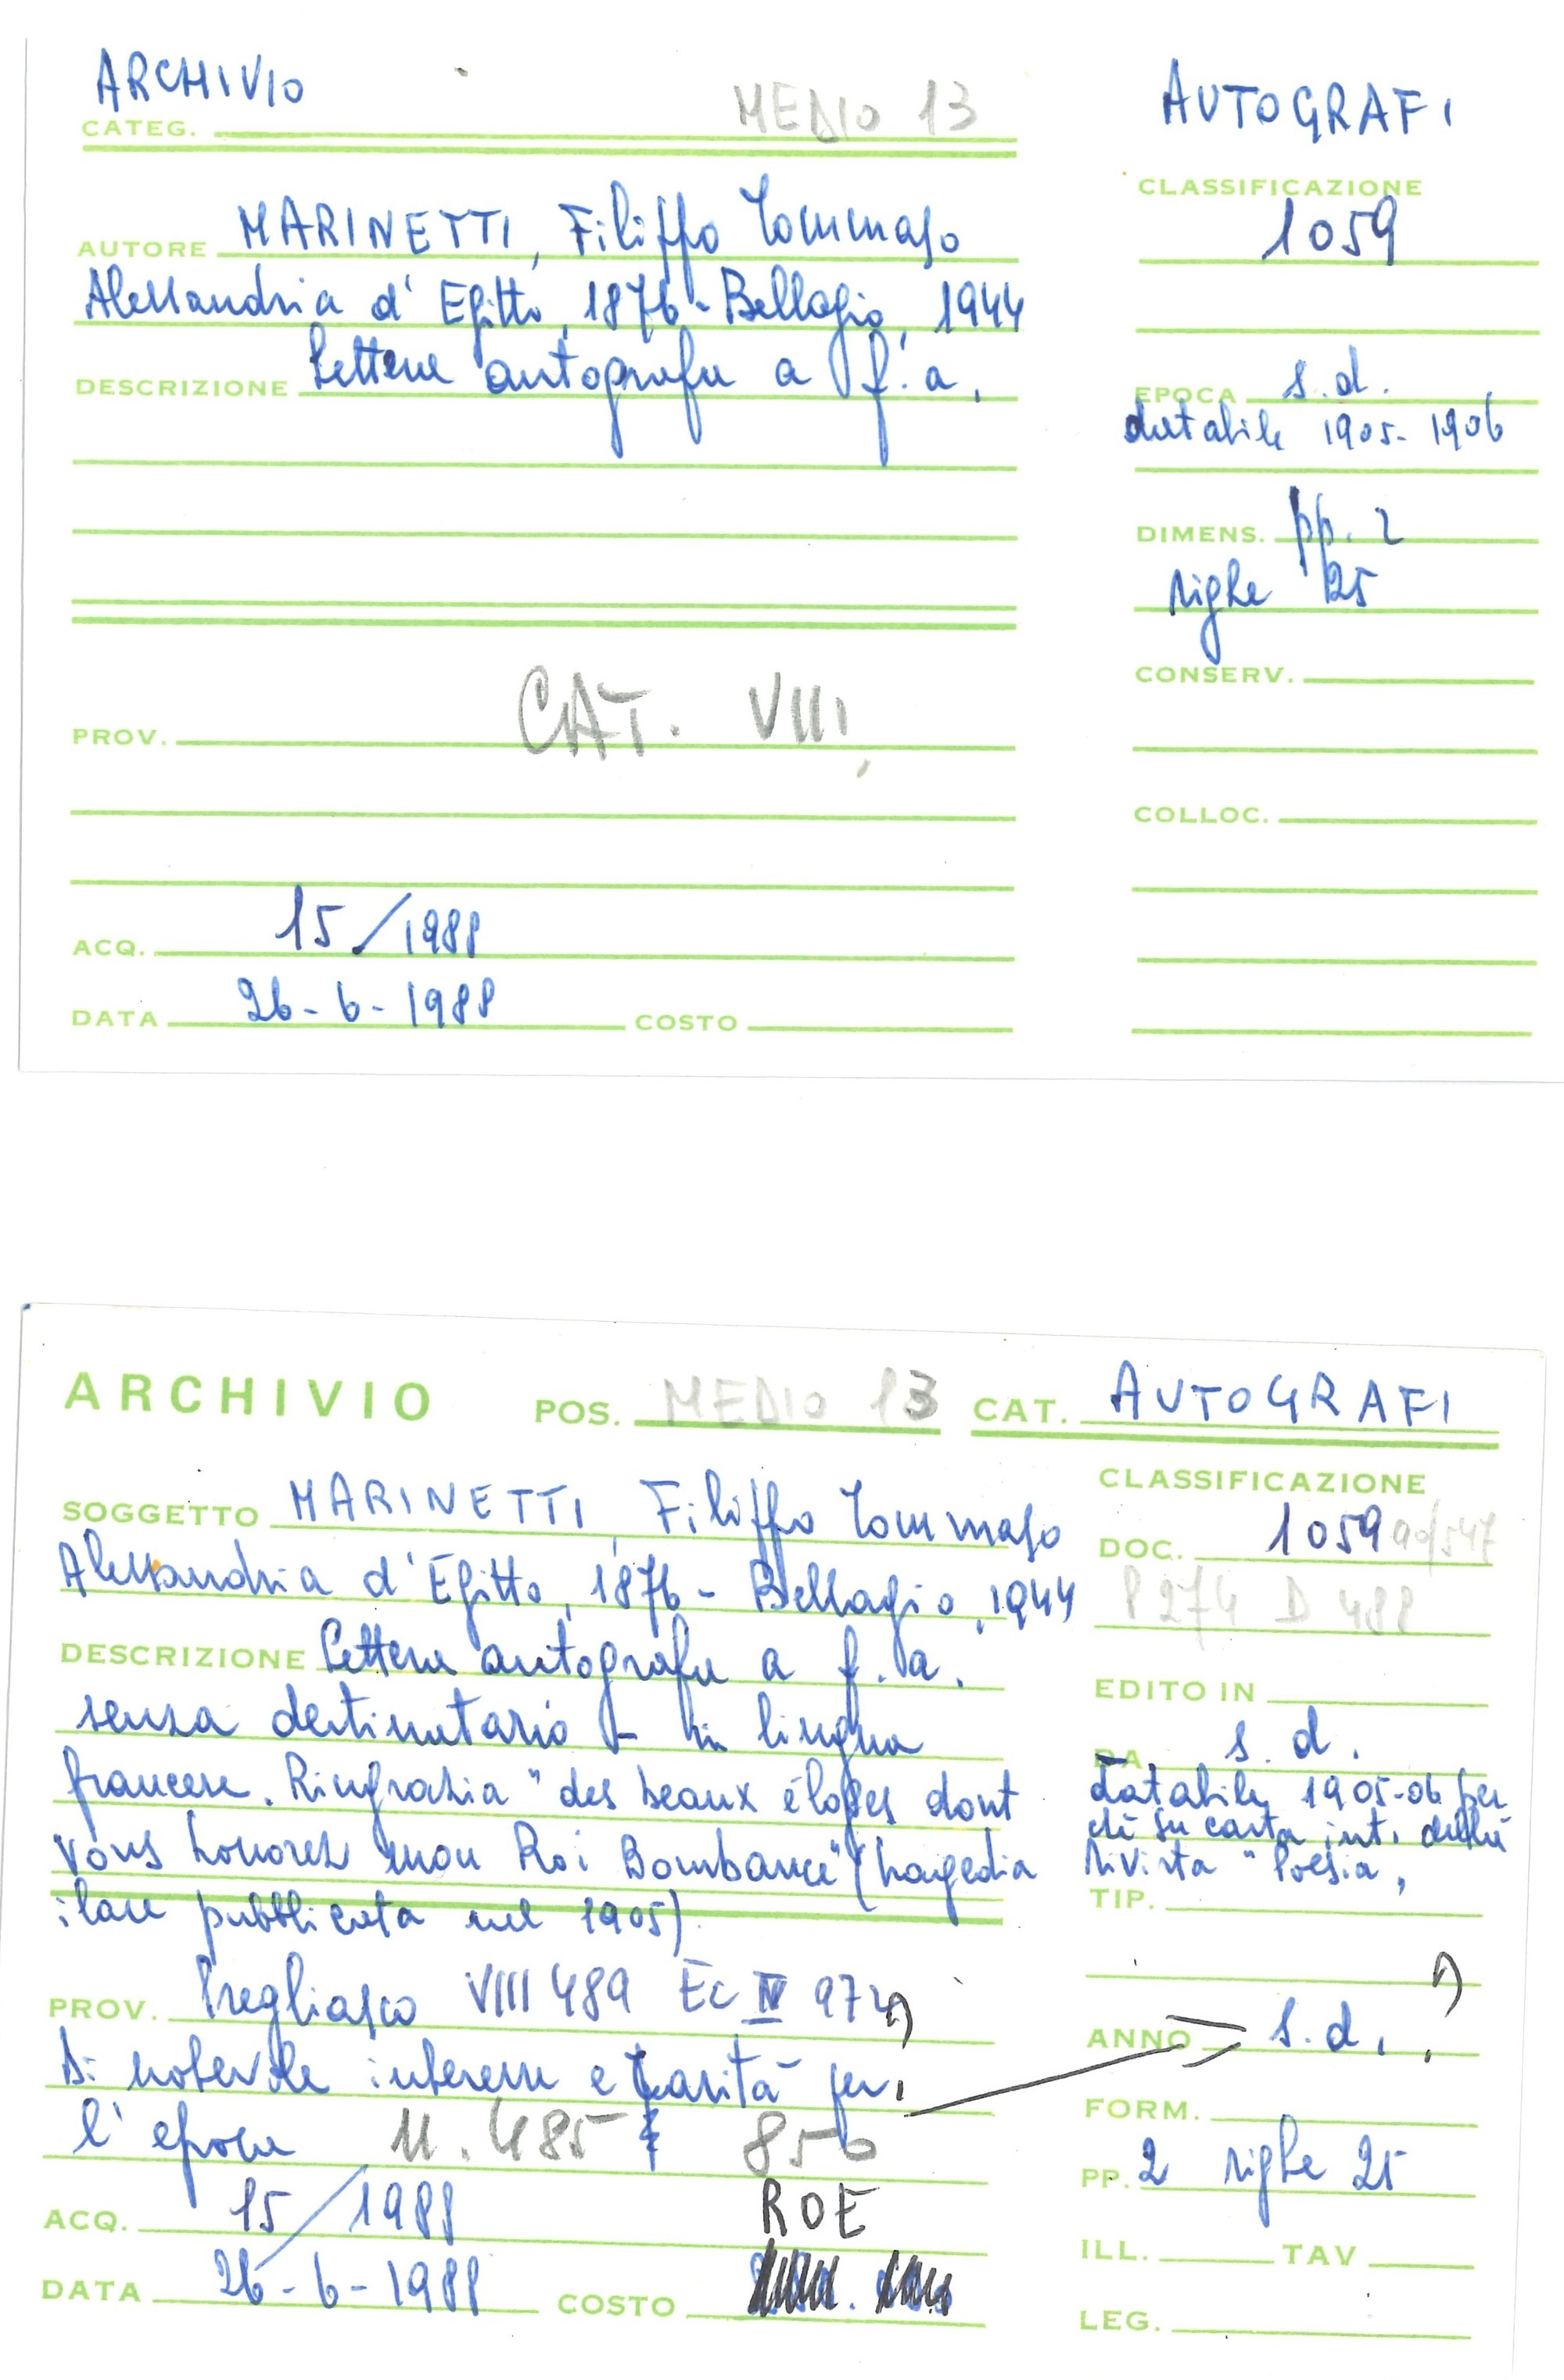 ARCHIVIO
CATEG. MEDIO 13
AUTOGRAFI
CLASSIFICAZIONE
1059
AUTORE MARINETTI, Filippo Tommaso
Alessandria d'Egitto, 1876 - Bellagio, 1944
DESCRIZIONE Lettera autografa a f.a.
EPOCA s.d.
databile 1905-1906
DIMENS. pp. 2
righe 25
CONSERV.
PROV. CAT. VIII
COLLOC.
ACQ. 15/1988
DATA 26-6-1988 COSTO
ARCHIVIO POS. MEDIO 13 CAT. AUTOGRAFI
SOGGETTO MARINETTI, Filippo Tommaso
Alessandria d'Egitto, 1876 - Bellagio, 1944
DESCRIZIONE Lettera autografa a f.a.
senza destinatario - in lingua
francese. Ringrazia "des beaux éloges dont
vous honorez mon Roi Bombance" (tragedia
ilare pubblicata nel 1905)
PROV. Pregliasco VIII 489 Ec IV 974
Di notevole interesse e rarità per
l'epoca n. 485 856
ACQ. 15/1988 ROE
DATA 26-6-1988 COSTO
CLASSIFICAZIONE
DOC. 1059 90/547
P 274 D 488
EDITO IN
DA s.d.
databile 1905-06 per
ché su carta int. della
rivista "Poesia"
TIP.
ANNO s.d.
FORM.
PP. 2 righe 25
ILL. TAV
LEG.